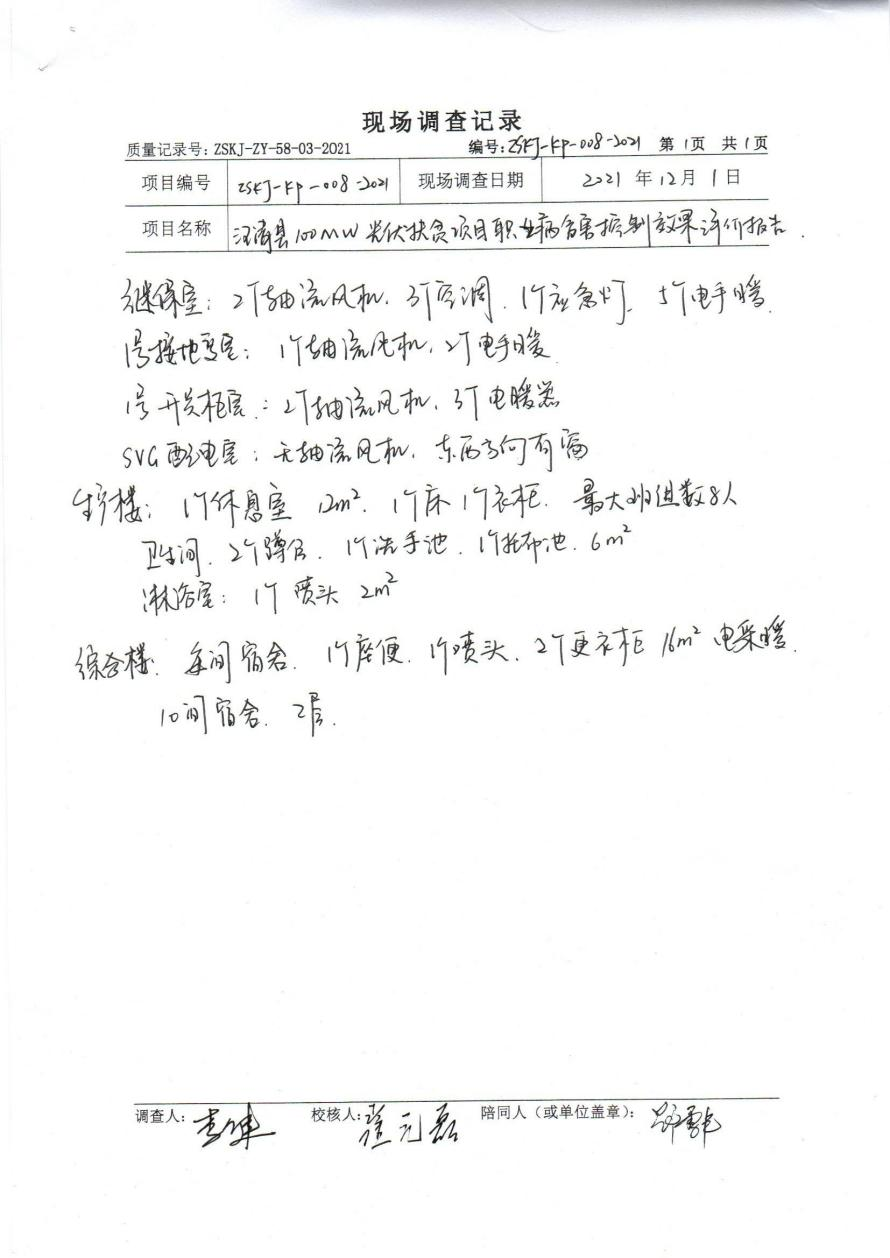 现场调查记录
质量记录号：ZSKJ-ZY-58-03-2021 编号：ZSKJ-KP-008-2021 第 1 页 共 1 页
项目编号 ZSKJ-KP-008-2021 现场调查日期 2021 年 12 月 1 日
项目名称 汪清县100MW光伏扶贫项目职业病危害控制效果评价报告.
继保室：2个轴流风机，3个空调，1个应急灯，5个电手暖.
1号接地变室：1个轴流风机，2个电手暖
1号开关柜室：2个轴流风机，3个电暖器
SVG配电室：无轴流风机，东西方向有窗
生产楼：1个休息室 12m². 1个床 1个衣柜. 最大班组数8人
卫生间. 2个蹲位. 1个洗手池. 1个拖布池. 6m²
淋浴室：1个喷头 2m²
综合楼. 每间宿舍. 1个座便. 1个喷头. 2个更衣柜 16m² 电采暖.
10间宿舍. 2层.
调查人： 校核人： 元磊 陪同人（或单位盖章）：